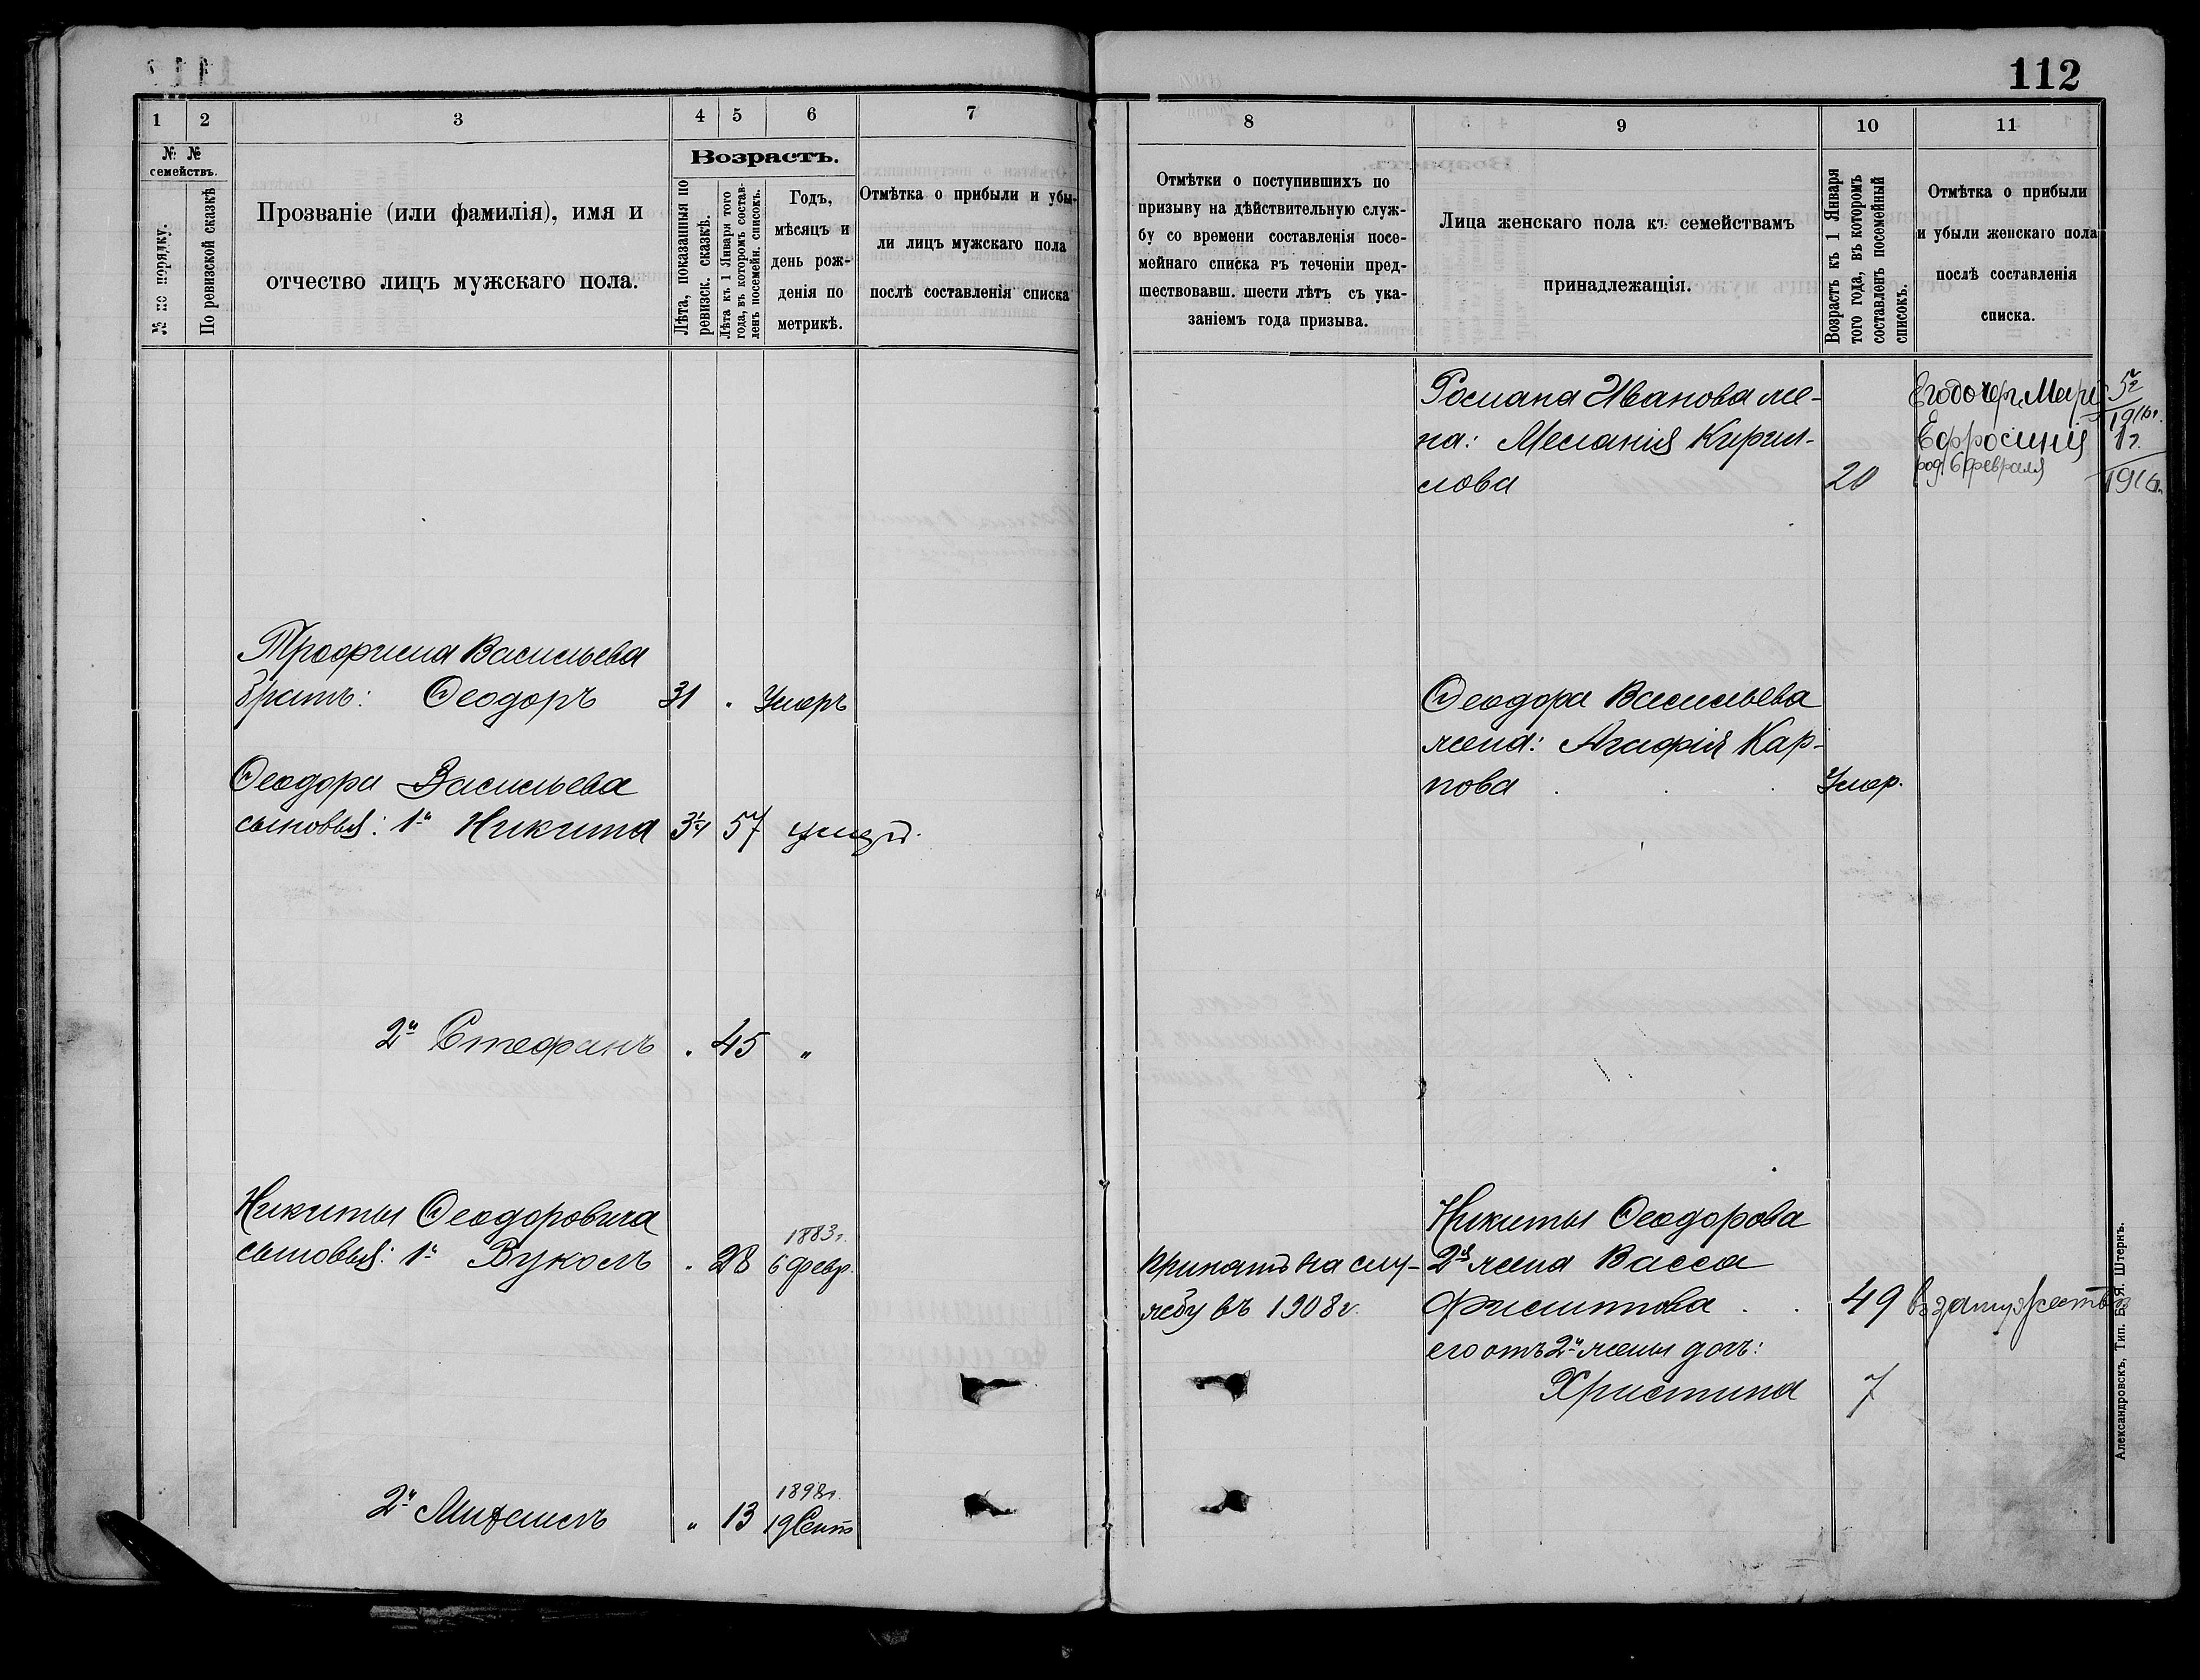 112
1
2
3
4
5
6
7
№ №
семействъ.
№ по порядку.
По ревизской сказкѣ
Прозваніе (или фамилія), имя и
отчество лицъ мужскаго пола.
Возрастъ.
Лѣта, показанныя по
ревизск. сказкѣ.
Лѣта къ 1 Января того
года, въ которомъ состав-
ленъ посемейн. списокъ.
Годъ,
мѣсяцъ и
день рож-
денія по
метрикѣ.
Отмѣтка о прибыли и убы-
ли лицъ мужскаго пола
послѣ составленія списка
Трофима Васильева
братъ: Ѳеодоръ 31 " Умеръ
Ѳеодора Васильева
сыновья: 1й Никита 3/4 57
2й Стефанъ " 45 "
Никиты Ѳеодоровича
1883г.
сыновья: 1й Вуколъ " 28 6 февр.
1898г.
2й Михаилъ " 13 19 Сент
8
9
10
11
Отмѣтки о поступившихъ по
призыву на дѣйствительную служ-
бу со времени составленія посе-
мейнаго списка въ теченіи пред-
шествовавш. шести лѣтъ съ ука-
заніемъ года призыва.
Лица женскаго пола къ семействамъ
принадлежащія.
Возрастъ къ 1 Января
того года, въ которомъ
составленъ посемейный
списокъ.
Отмѣтка о прибыли
и убыли женскаго пола
послѣ составленія
списка.
Романа Иванова же-
на: Меланія Кирил-
лова 20
Его дочери Марія 5г
1916г.
Ефросинія 1г.
род. 6 февраля 1916г.
Ѳеодора Васильева
жена: Агафія Кар-
пова Умер.
Никиты Ѳеодорова
принятъ на слу- 2я жена Васса
жбу въ 1908г. Филиппова 49 въ замужествѣ
его отъ 2й жены дочь:
Христина 7
Александровскъ, Тип. Б. Я. Штернъ.